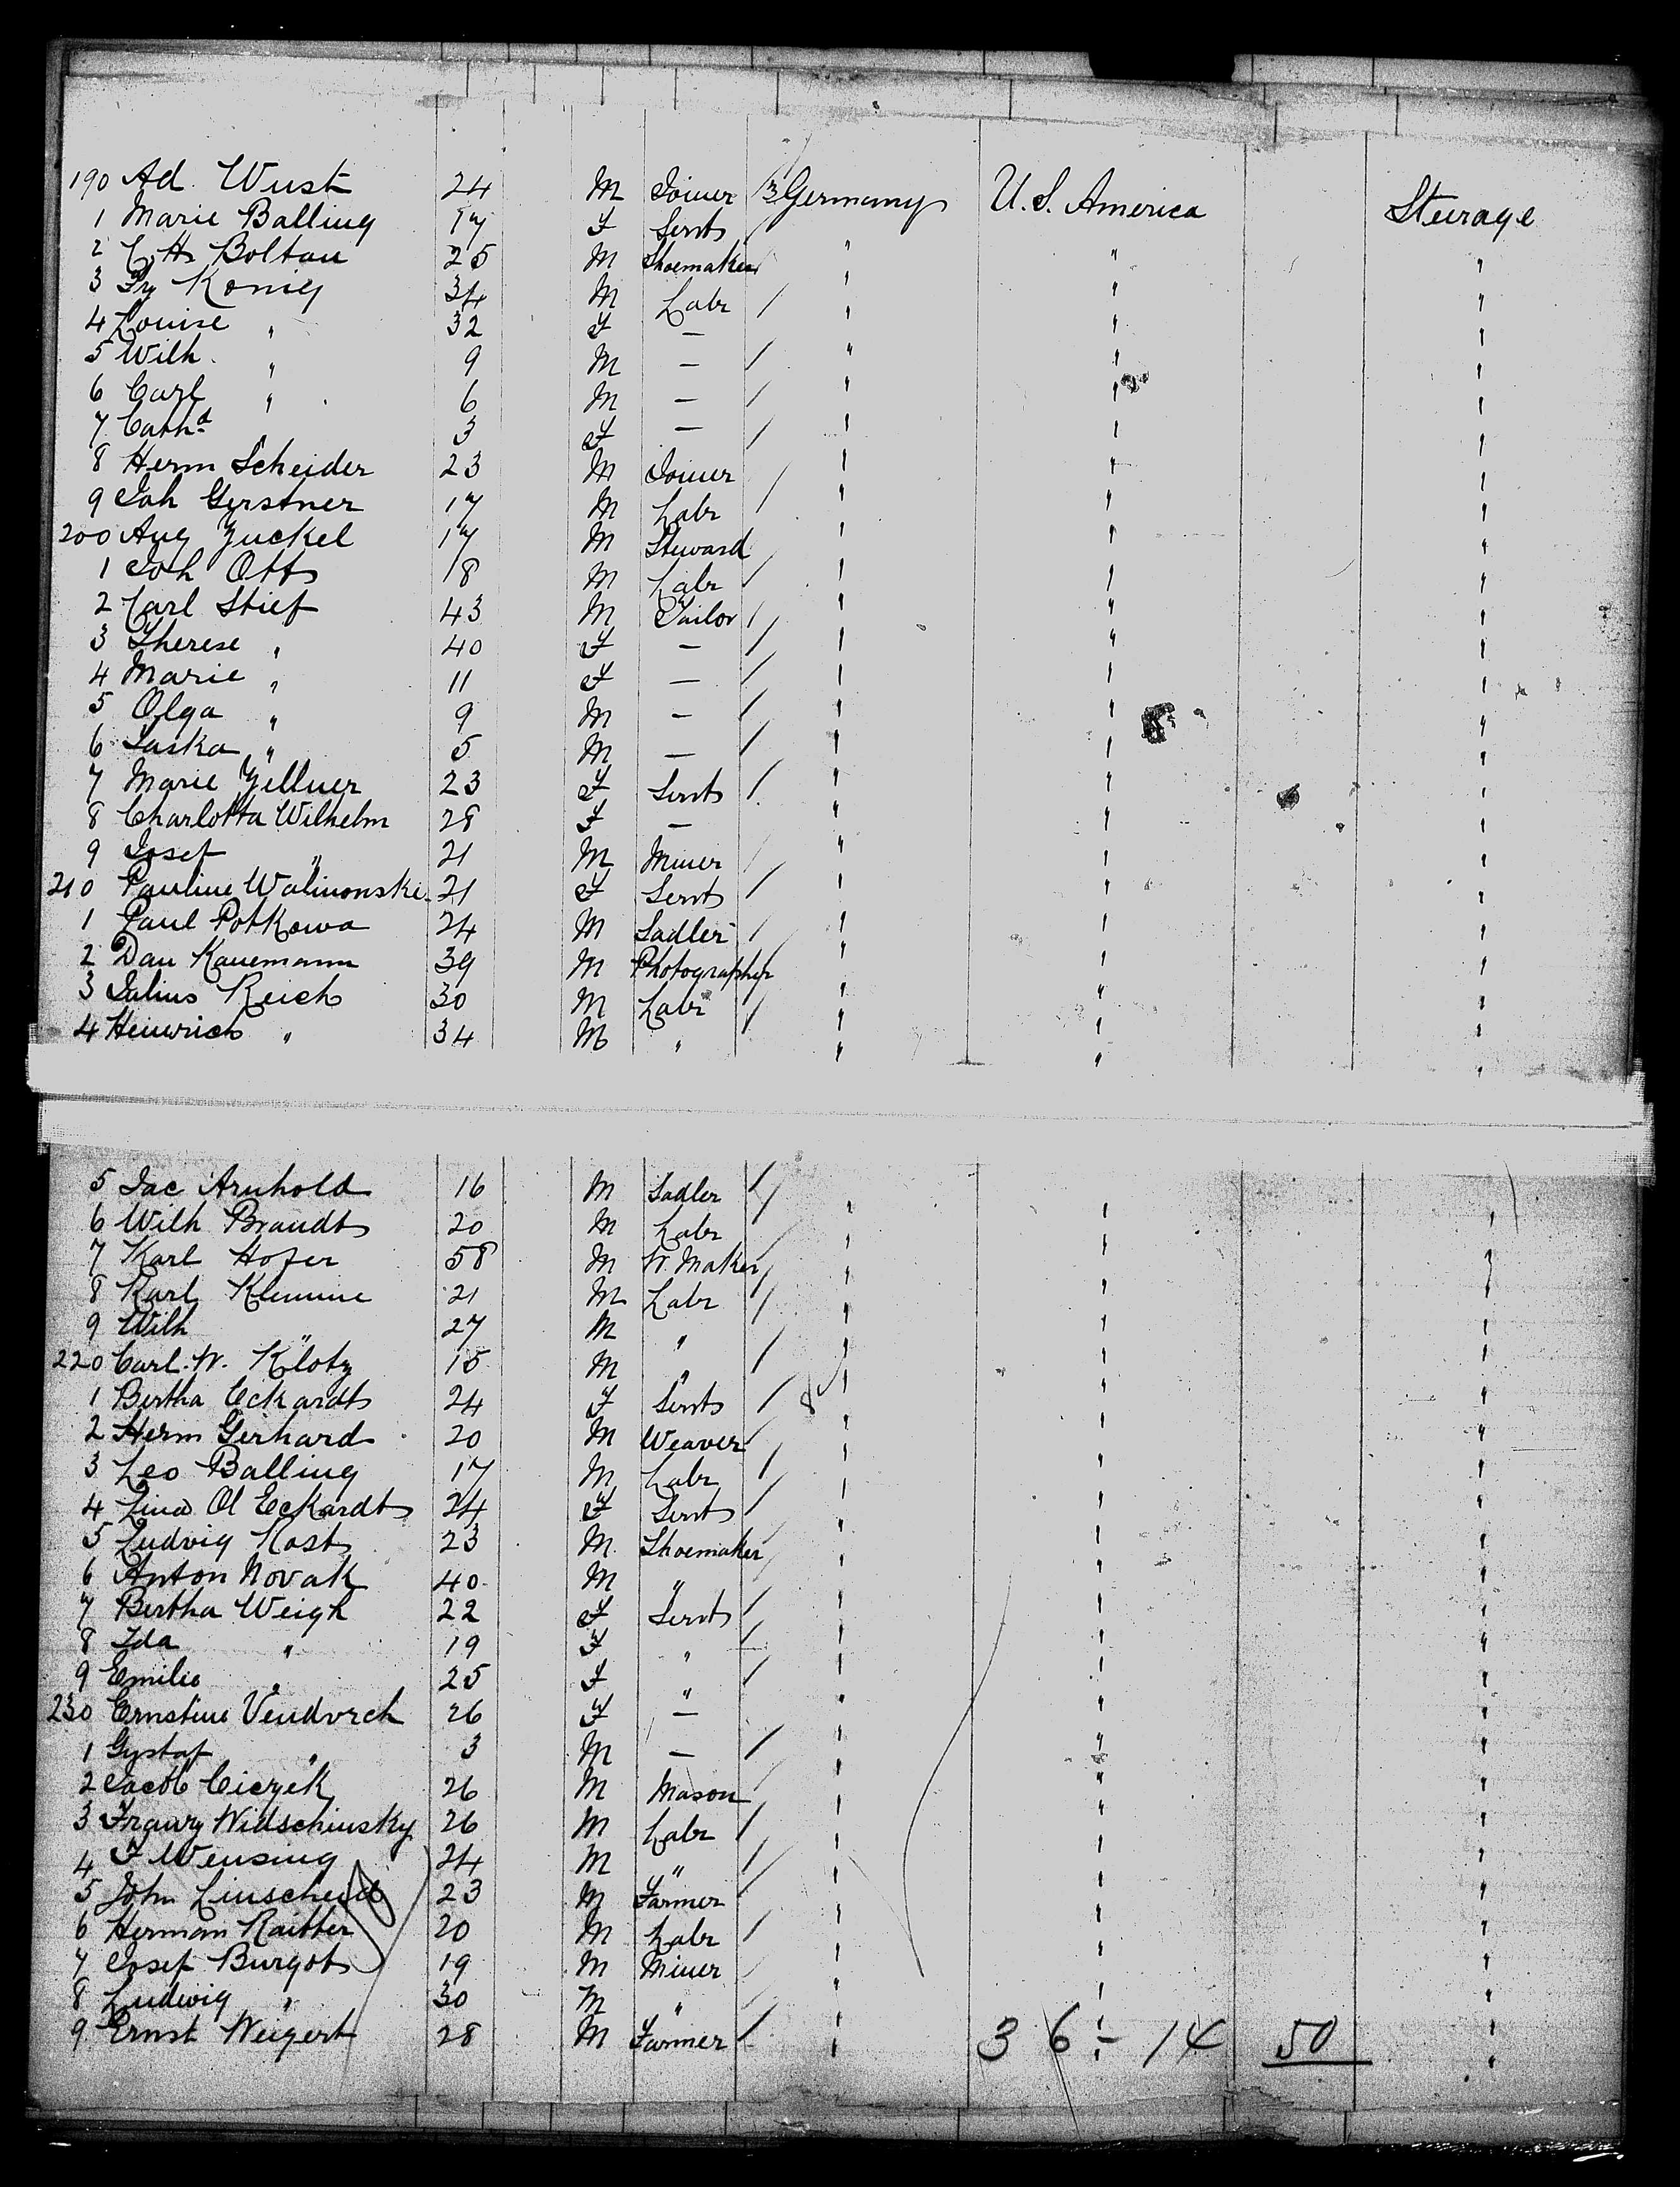 190 Ad. Wust 24 M Joiner Germany U.S. America Steerage
1 Marie Balling 17 F Servt " " "
2 C. H. Boltau 25 M Shoemaker " " "
3 Fr König 34 M Labr " " "
4 Louise " 32 F — " " "
5 Wilh. " 9 M — " " "
6 Carl " 6 M — " " "
7 Catha 3 F — " " "
8 Herm Scheider 23 M Joiner " " "
9 Joh Gerstner 17 M Labr " " "
200 Aug Zuckel 17 M Steward " " "
1 Joh Ott 18 M Labr " " "
2 Carl Stief 43 M Tailor " " "
3 Therese " 40 F — " " "
4 Marie " 11 F — " " "
5 Olga " 9 M — " " "
6 Saska " 5 M — " " "
7 Marie Zellner 23 F Servt " " "
8 Charlotta Wilhelm 28 F — " " "
9 Josef " 21 M Miner " " "
210 Pauline Walinonski 21 F Servt " " "
1 Paul Potkowa 24 M Sadler " " "
2 Dan Kanemann 39 M Photographer " " "
3 Julius Reich 30 M Labr " " "
4 Heinrich " 34 M " " " "
5 Jac Arnhold 16 M Sadler " " "
6 Wilh Brandt 20 M Labr " " "
7 Karl Hofer 58 M W. Maker " " "
8 Karl Klemme 21 M Labr " " "
9 Wilh " 27 M " " " "
220 Carl. W. Klotz 15 M " " " "
1 Bertha Eckardt 24 F Servt " " "
2 Herm Gerhard 20 M Weaver " " "
3 Leo Balling 17 M Labr " " "
4 Lina Ol Eckardt 24 F Servt " " "
5 Ludvig Kost 23 M Shoemaker " " "
6 Anton Novak 40 M " " " "
7 Bertha Weigh 22 F Servt " " "
8 Ida " 19 F " " " "
9 Emilie " 25 F " " " "
230 Ernstine Vendvrch 26 F — " " "
1 Gustaf " 3 M — " " "
2 Jacob Ciczek 26 M Mason " " "
3 Franz Widschinsky 26 M Labr " " "
4 F Wensing 24 M " " " "
5 John Linscheid 23 M Farmer " " "
6 Herman Raitter 20 M Labr " " "
7 Josef Burgot 19 M Miner " " "
8 Ludwig " 30 M " " " "
9 Ernst Weigert 28 M Farmer " " "
36 - 14 50